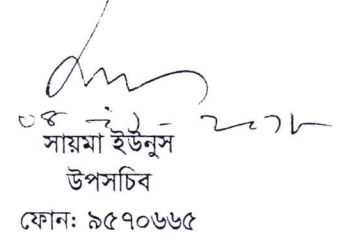 সায়মা ইউনুস
উপসচিব
ফোন: ৯৫৭০৬৬৫